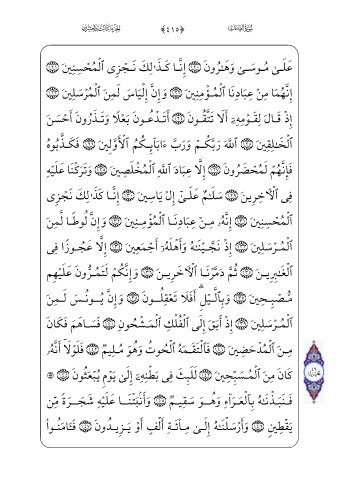 سُورَةُ الصَّافَّات ﴿٤١٥﴾ الجُزْءُ الثَّالِثُ وَالعِشْرُونَ
عَلَىٰ مُوسَىٰ وَهَـٰرُونَ ١٢٠ إِنَّا كَذَٰلِكَ نَجْزِى ٱلْمُحْسِنِينَ ١٢١
إِنَّهُمَا مِنْ عِبَادِنَا ٱلْمُؤْمِنِينَ ١٢٢ وَإِنَّ إِلْيَاسَ لَمِنَ ٱلْمُرْسَلِينَ ١٢٣
إِذْ قَالَ لِقَوْمِهِۦٓ أَلَا تَتَّقُونَ ١٢٤ أَتَدْعُونَ بَعْلًا وَتَذَرُونَ أَحْسَنَ
ٱلْخَـٰلِقِينَ ١٢٥ ٱللَّهَ رَبَّكُمْ وَرَبَّ ءَابَآئِكُمُ ٱلْأَوَّلِينَ ١٢٦ فَكَذَّبُوهُ
فَإِنَّهُمْ لَمُحْضَرُونَ ١٢٧ إِلَّا عِبَادَ ٱللَّهِ ٱلْمُخْلَصِينَ ١٢٨ وَتَرَكْنَا عَلَيْهِ
فِى ٱلْـَٔاخِرِينَ ١٢٩ سَلَـٰمٌ عَلَىٰٓ إِلْ يَاسِينَ ١٣٠ إِنَّا كَذَٰلِكَ نَجْزِى
ٱلْمُحْسِنِينَ ١٣١ إِنَّهُۥ مِنْ عِبَادِنَا ٱلْمُؤْمِنِينَ ١٣٢ وَإِنَّ لُوطًا لَّمِنَ
ٱلْمُرْسَلِينَ ١٣٣ إِذْ نَجَّيْنَـٰهُ وَأَهْلَهُۥٓ أَجْمَعِينَ ١٣٤ إِلَّا عَجُوزًا فِى
ٱلْغَـٰبِرِينَ ١٣٥ ثُمَّ دَمَّرْنَا ٱلْـَٔاخَرِينَ ١٣٦ وَإِنَّكُمْ لَتَمُرُّونَ عَلَيْهِم
مُّصْبِحِينَ ١٣٧ وَبِٱلَّيْلِ ۗ أَفَلَا تَعْقِلُونَ ١٣٨ وَإِنَّ يُونُسَ لَمِنَ
ٱلْمُرْسَلِينَ ١٣٩ إِذْ أَبَقَ إِلَى ٱلْفُلْكِ ٱلْمَشْحُونِ ١٤٠ فَسَاهَمَ فَكَانَ
مِنَ ٱلْمُدْحَضِينَ ١٤١ فَٱلْتَقَمَهُ ٱلْحُوتُ وَهُوَ مُلِيمٌ ١٤٢ فَلَوْلَآ أَنَّهُۥ
كَانَ مِنَ ٱلْمُسَبِّحِينَ ١٤٣ لَلَبِثَ فِى بَطْنِهِۦٓ إِلَىٰ يَوْمِ يُبْعَثُونَ ١٤٤ ۞
فَنَبَذْنَـٰهُ بِٱلْعَرَآءِ وَهُوَ سَقِيمٌ ١٤٥ وَأَنۢبَتْنَا عَلَيْهِ شَجَرَةً مِّن
يَقْطِينٍ ١٤٦ وَأَرْسَلْنَـٰهُ إِلَىٰ مِا۟ئَةِ أَلْفٍ أَوْ يَزِيدُونَ ١٤٧ فَـَٔامَنُوا۟